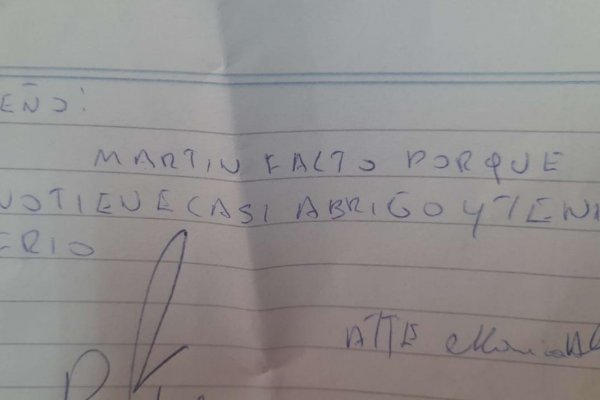 EÑO:
MARTIN FALTO PORQUE
NOTIENE CASI ABRIGO Y TENI
FRIO
ATTE